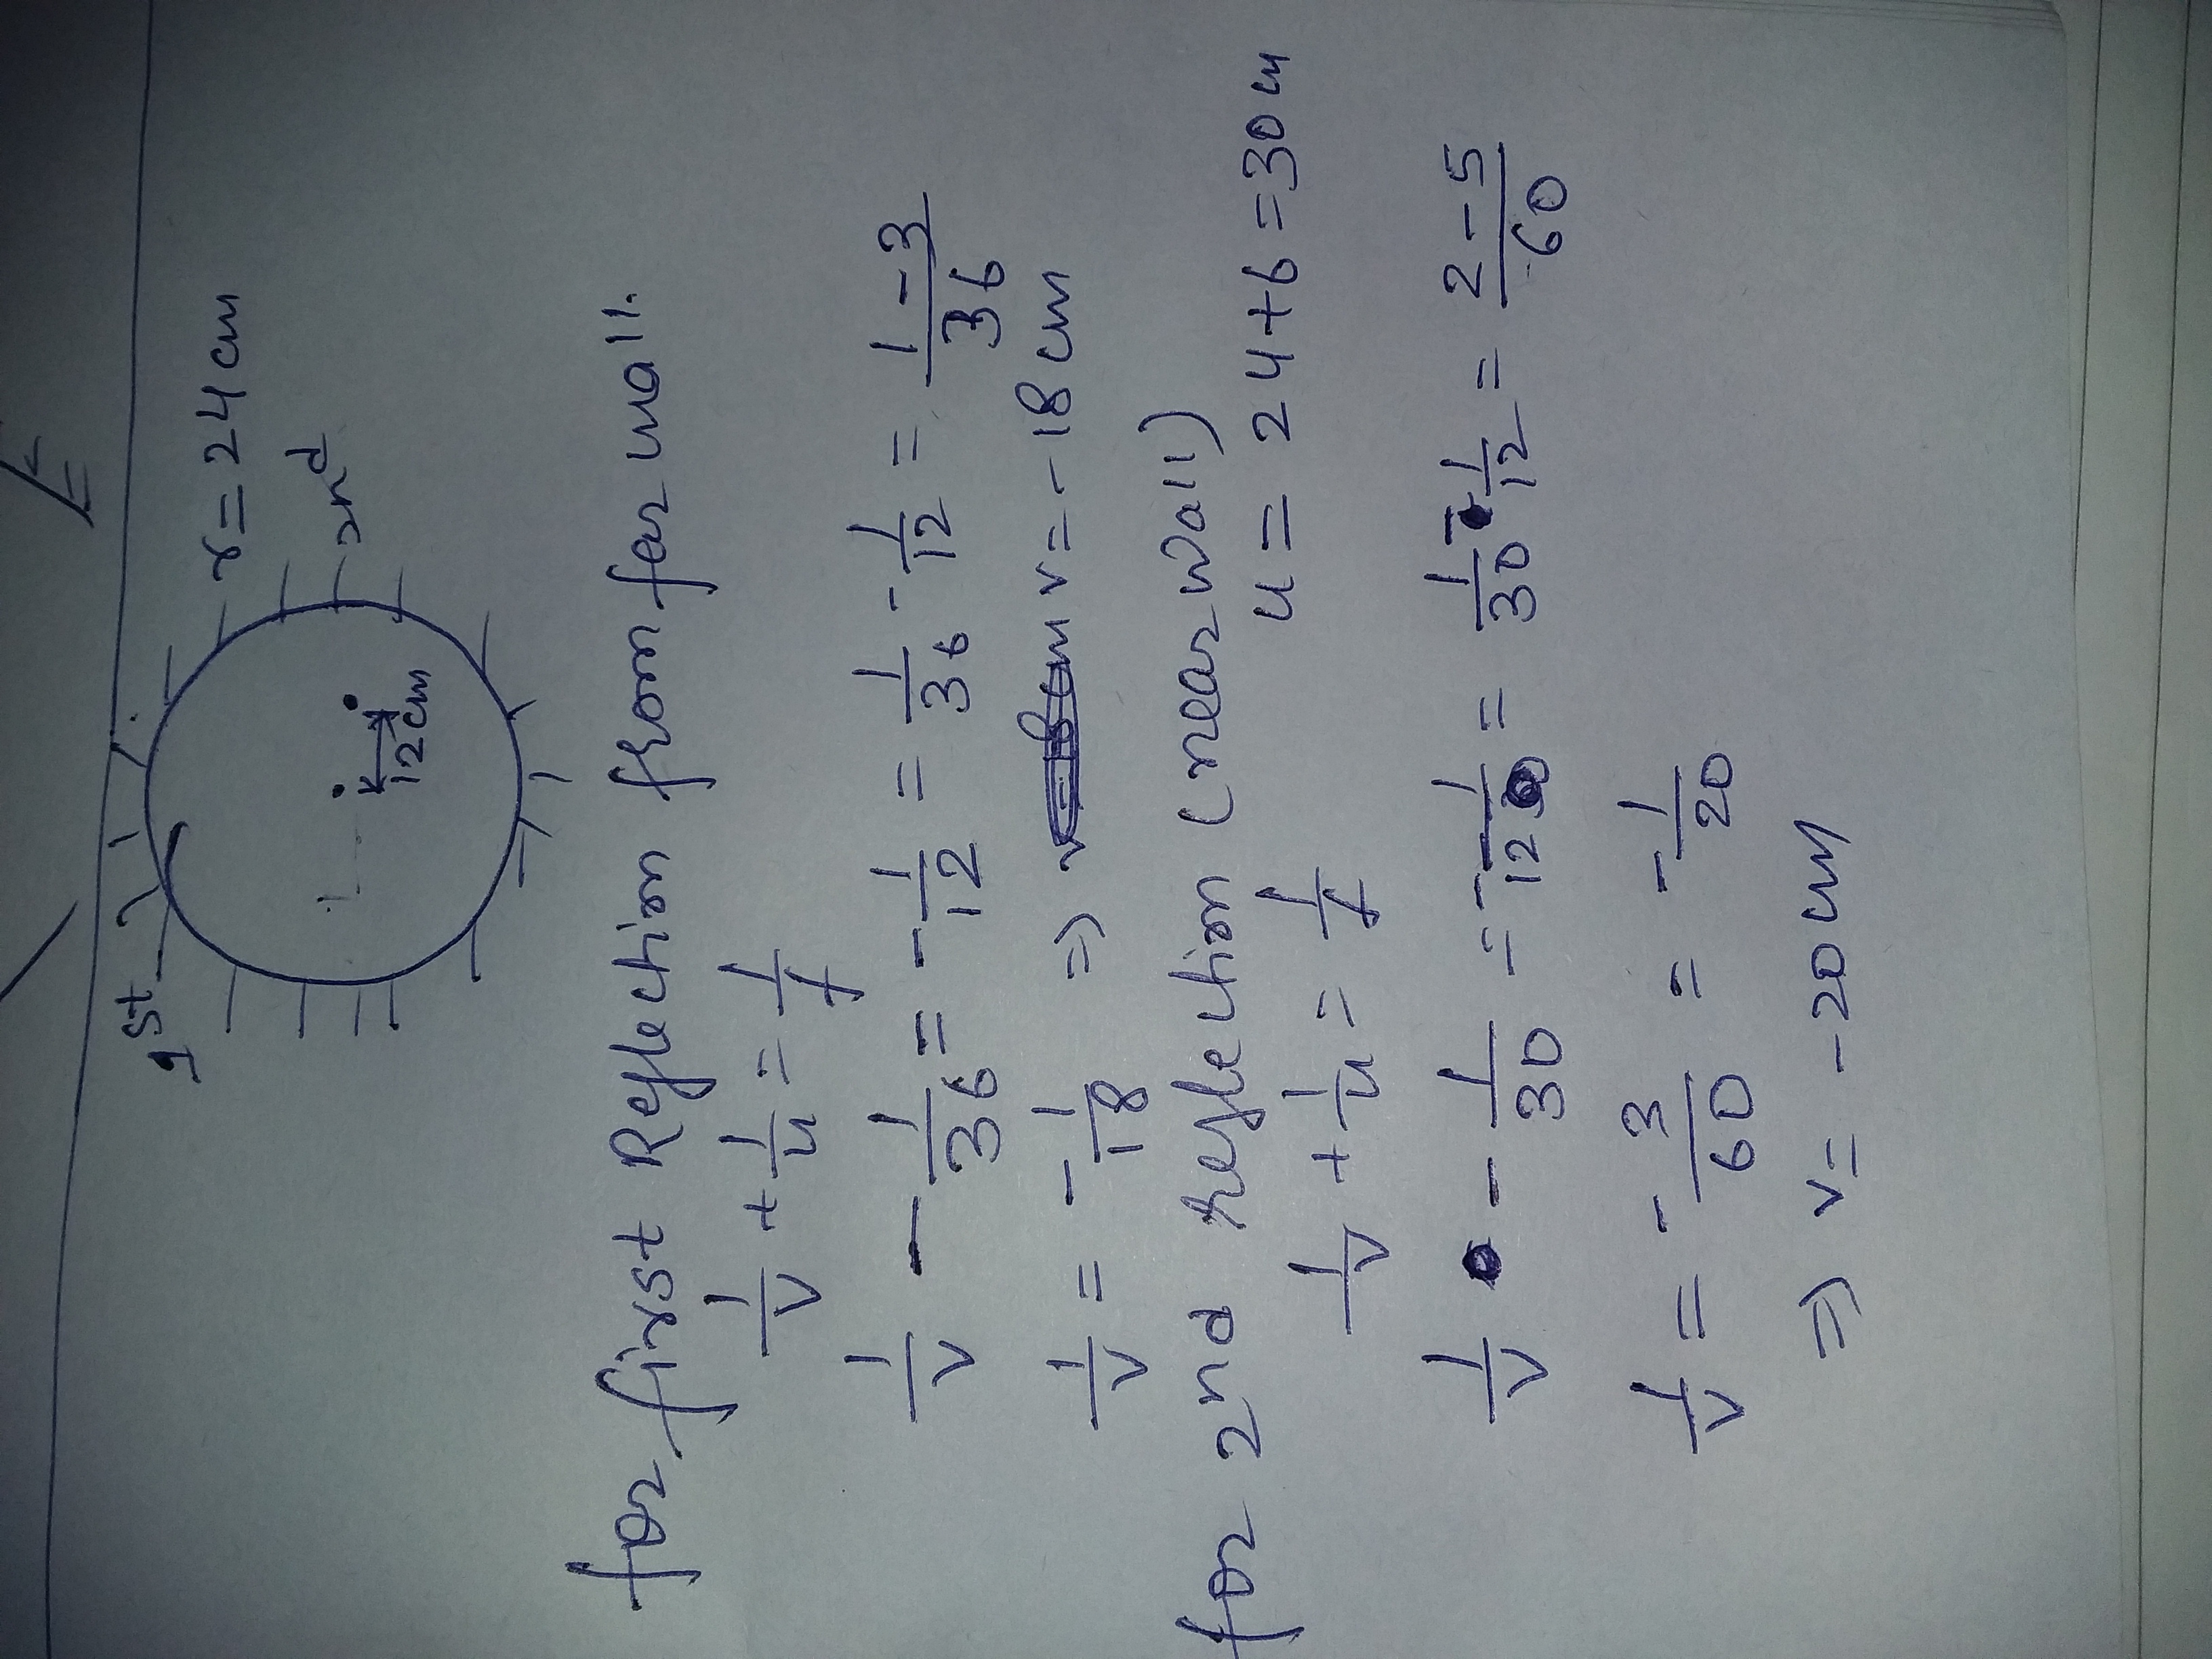 r = 24 cm
1st
2nd
12 cm
for first Reflection from far wall.
1/v + 1/u = 1/f
1/v - 1/36 = - 1/12 = 1/36 - 1/12 = 1-3/36
1/v = - 1/18 ⇒ v = -18 cm
for 2nd reflection (near wall)
u = 24+6 = 30 cm
1/v + 1/u = 1/f
1/v - 1/30 = - 1/12 = 1/30 - 1/12 = 2-5/60
1/v = - 3/60 = - 1/20
⇒ v = -20 cm